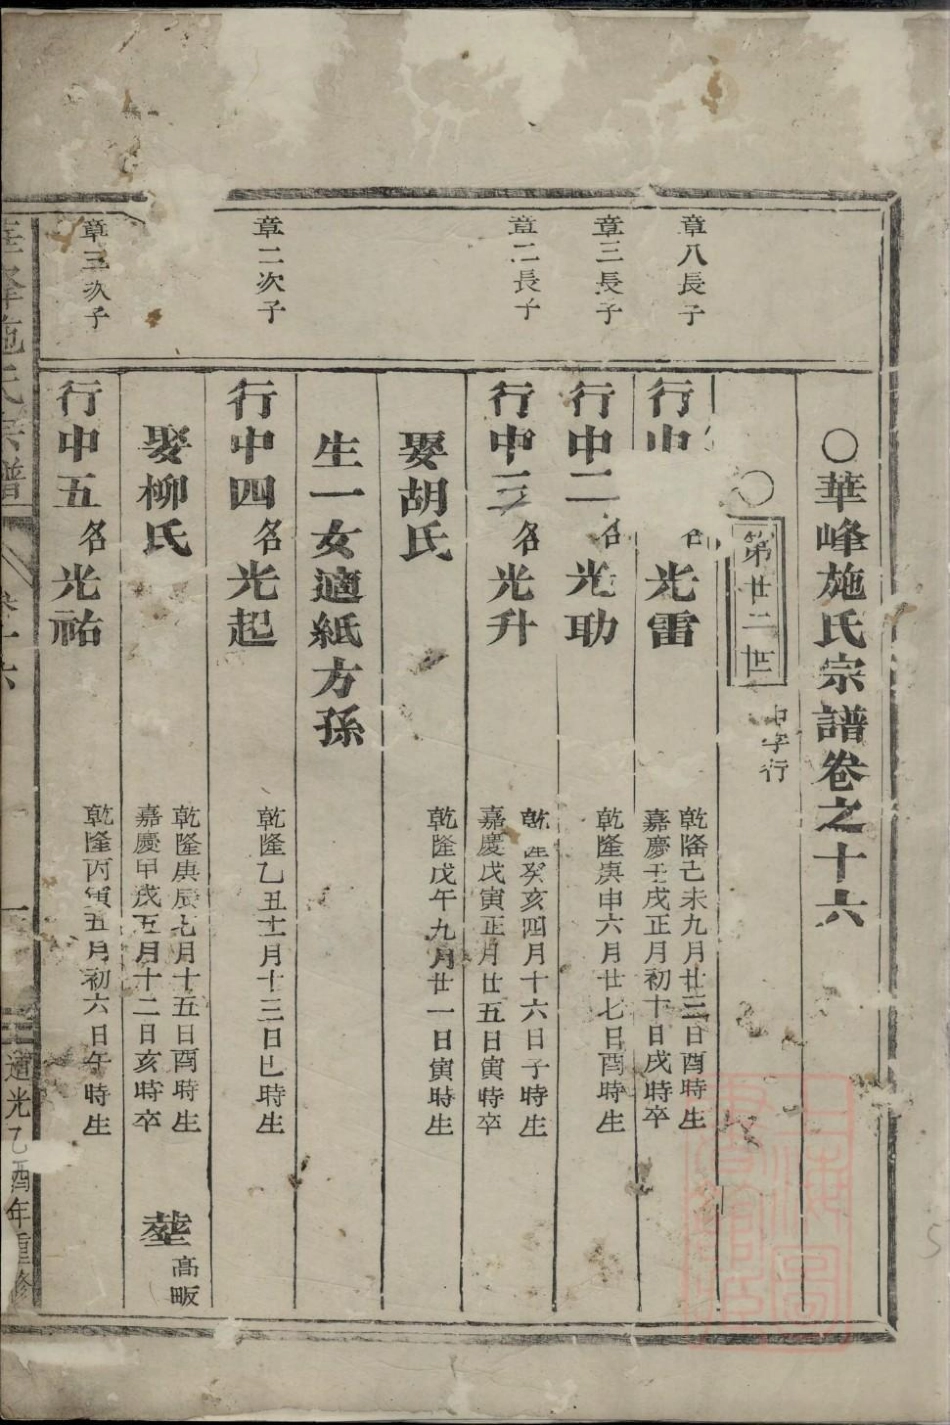 ○華峰施氏宗譜卷之十六
○第廿二世
中字行
章八長子
行中 名光雷
乾隆己未九月廿三日酉時生
嘉慶壬戌正月初十日戌時卒
章三長子
行中二名光助
乾隆庚申六月廿七日酉時生
章二長子
行中三名光升
乾隆癸亥四月十六日子時生
嘉慶戊寅正月廿五日寅時卒
娶胡氏
乾隆戊午九月廿一日寅時生
生一女適紙方孫
章二次子
行中四名光起
乾隆乙丑十一月十三日巳時生
娶柳氏
乾隆庚辰七月十五日酉時生
嘉慶甲戌五月十二日亥時卒
塟高畈
章三次子
行中五名光祐
乾隆丙寅五月初六日午時生
華峰施氏宗譜
卷十六
一
道光乙酉年重修